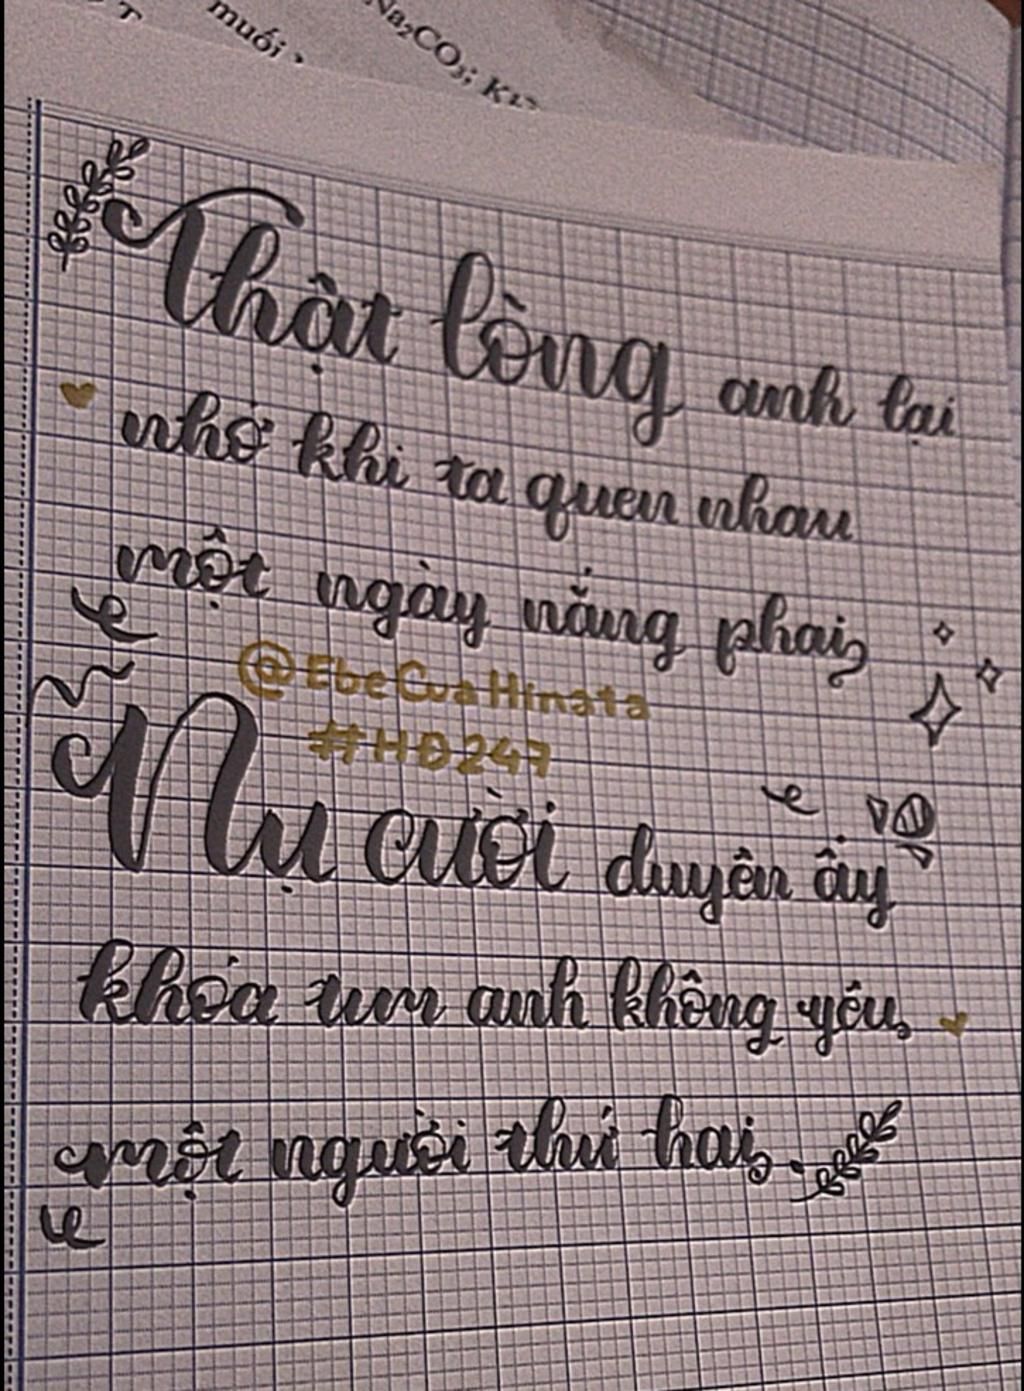 muối
Na₂CO₃;
Thật lòng anh lại
nhớ khi ta quen nhau
một ngày nắng phai
@EbeCuaHinata
#HĐ247
Nụ cười duyên ấy
khóa tim anh không yêu
một người thứ hai